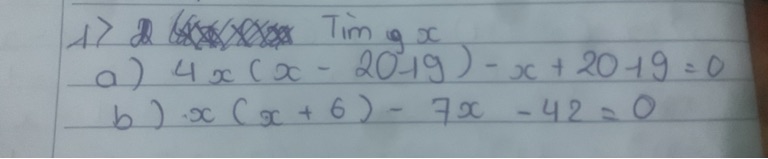 1> Tìm x
a) 4x(x - 2019) - x + 2019 = 0
b) x(x + 6) - 7x - 42 = 0